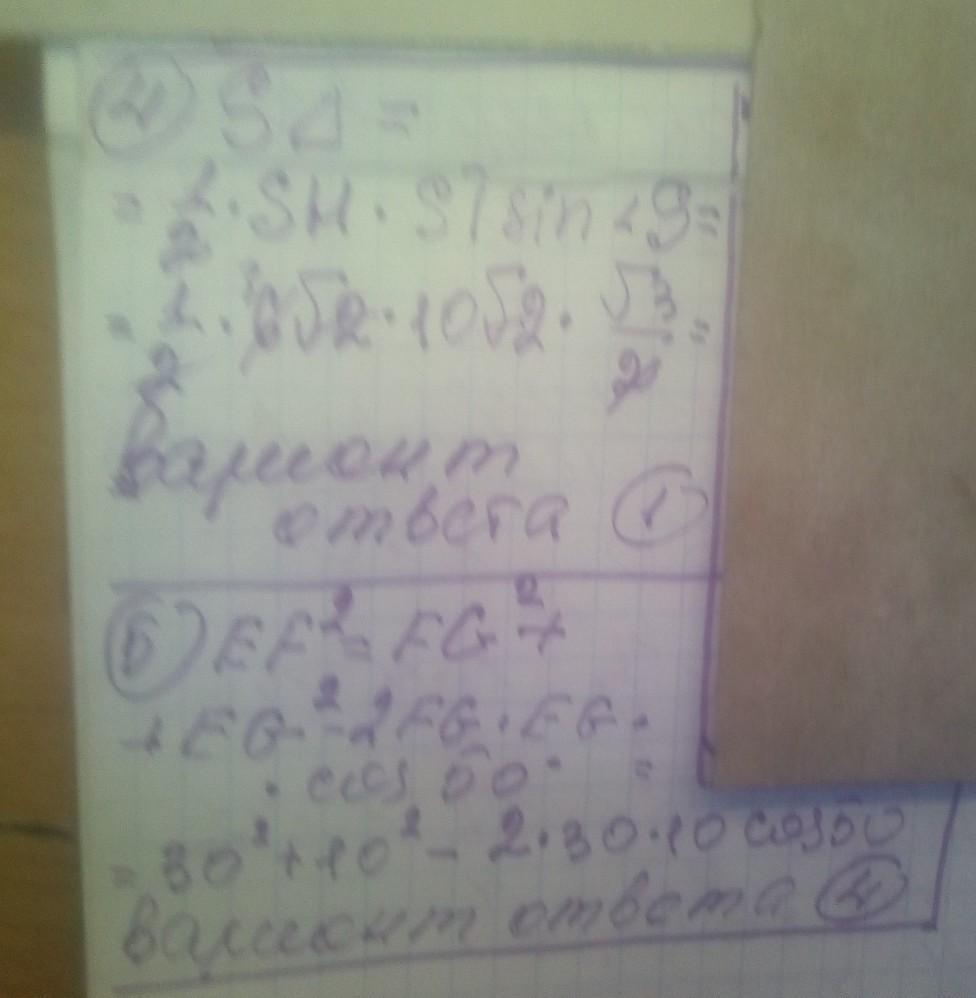 ④ S∆ =
= 1/2 · SH · ST sin ∠S =
= 1/2 · 6√2 · 10√2 · √3/2 =
вариант
ответа ①
⑤ EF² = FG² +
+ EG² - 2FG · EG ·
· cos 50° =
= 30² + 10² - 2·30·10 cos 50
вариант ответа ④